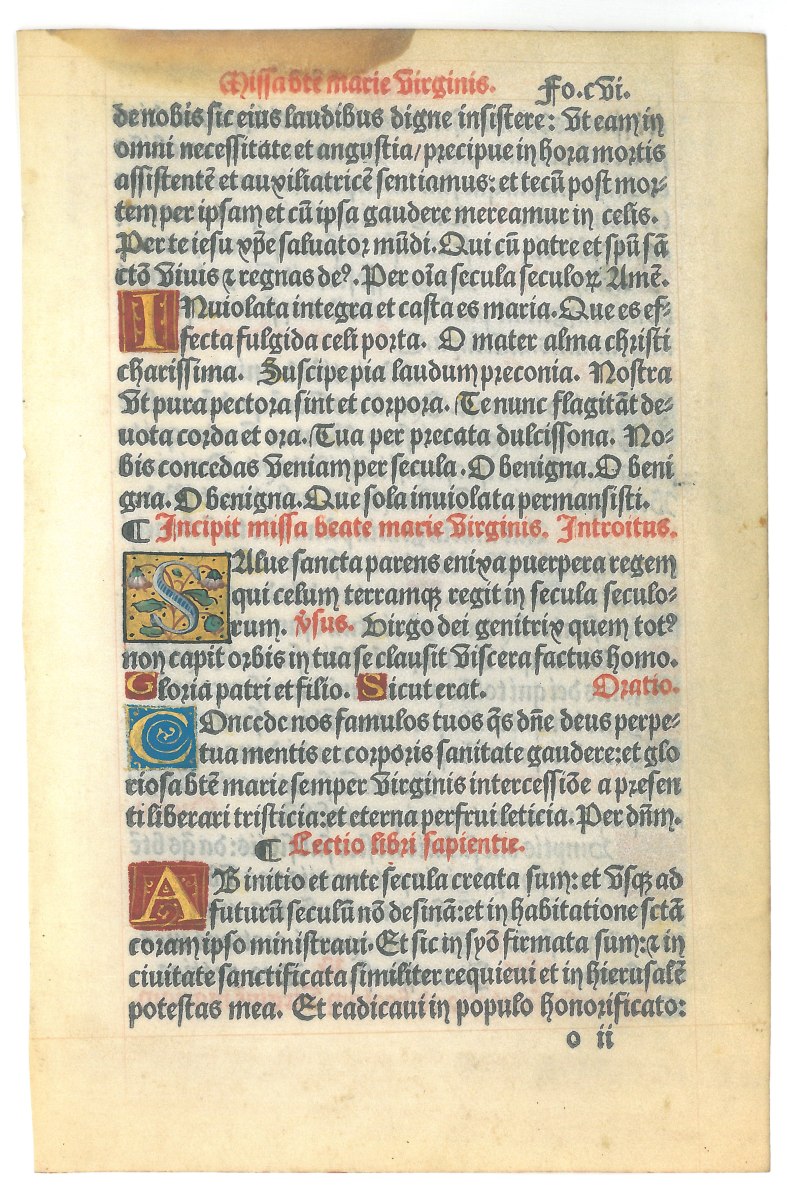 Missa btē marie Virginis. Fo.cVi.
de nobis sic eius laudibus digne insistere: Vt eam in
omni necessitate et angustia/precipue in hora mortis
assistentē et auxiliatricē sentiamus: et tecū post mor⸗
tem per ipsam et cū ipsa gaudere mereamur in celis.
Per te iesu xp̄e saluator mūdi. Qui cū patre et spū sā
ctō Viuis ⁊ regnas deꝰ. Per oīa secula seculoꝝ Amē.
INuiolata integra et casta es maria. Que es ef⸗
fecta fulgida celi porta. O mater alma christi
charissima. Suscipe pia laudum preconia. Nostra
Vt pura pectora sint et corpora. Te nunc flagitāt de⸗
uota corda et ora. Tua per precata dulcissona. No⸗
bis concedas Veniam per secula. O benigna. O beni
gna. O benigna. Que sola inuiolata permansisti.
¶ Incipit missa beate marie Virginis. Introitus.
SAlue sancta parens enixa puerpera regem
qui celum terramqꝫ regit in secula seculo⸗
rum. v̄sus. Virgo dei genitrix quem totꝰ
non capit orbis in tua se clausit Viscera factus homo.
Gloria patri et filio. Sicut erat. Oratio.
COncede nos famulos tuos q̄s dn̄e deus perpe⸗
tua mentis et corporis sanitate gaudere: et glo
riosa btē marie semper Virginis intercessiōe a presen
ti liberari tristicia: et eterna perfrui leticia. Per dn̄m.
¶ Lectio libri sapientie.
AB initio et ante secula creata sum: et Vsqꝫ ad
futurū seculū nō desinā: et in habitatione sctā
coram ipso ministraui. Et sic in syō firmata sum: ⁊ in
ciuitate sanctificata similiter requieui et in hierusalē
potestas mea. Et radicaui in populo honorificato:
o ii